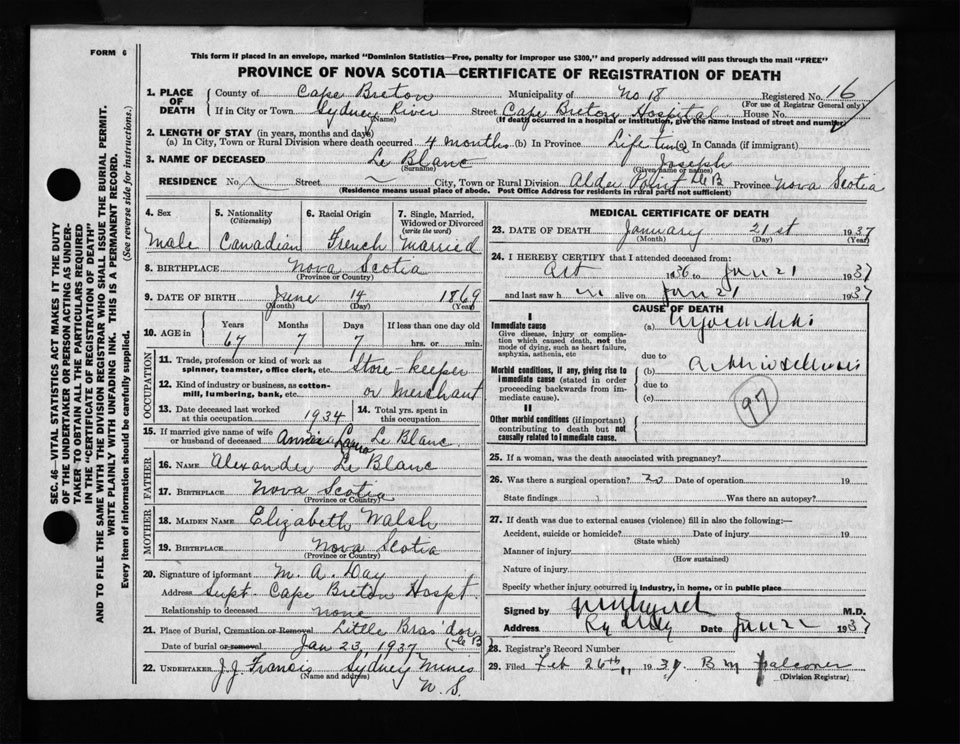 FORM 6
This form if placed in an envelope, marked "Dominion Statistics—Free, penalty for improper use $300," and properly addressed will pass through the mail "FREE"
PROVINCE OF NOVA SCOTIA—CERTIFICATE OF REGISTRATION OF DEATH
SEC. 46—VITAL STATISTICS ACT MAKES IT THE DUTY
OF THE UNDERTAKER OR PERSON ACTING AS UNDER-
TAKER TO OBTAIN ALL THE PARTICULARS REQUIRED
IN THE "CERTIFICATE OF REGISTRATION OF DEATH"
AND TO FILE THE SAME WITH THE DIVISION REGISTRAR WHO SHALL ISSUE THE BURIAL PERMIT.
WRITE PLAINLY WITH UNFADING INK. THIS IS A PERMANENT RECORD.
Every item of information should be carefully supplied. (See reverse side for instructions.)
1. PLACE OF DEATH County of Cape Breton Municipality of No 18 Registered No. 16
(For use of Registrar General only)
If in City or Town Sydney River (Name) Street Cape Breton Hospital House No.
(If death occurred in a hospital or institution, give the name instead of street and number)
2. LENGTH OF STAY (in years, months and days)
(a) In City, Town or Rural Division where death occurred 4 months (b) In Province Life time (c) In Canada (if immigrant)
3. NAME OF DECEASED Le Blanc Joseph
(Surname) (Given name or names)
RESIDENCE No. Street City, Town or Rural Division Alder Point CB Province Nova Scotia
(Residence means usual place of abode. Post Office Address for residents in rural parts not sufficient)
4. Sex Male
5. Nationality (Citizenship) Canadian
6. Racial Origin French
7. Single, Married, Widowed or Divorced (write the word) Married
8. BIRTHPLACE Nova Scotia
(Province or Country)
9. DATE OF BIRTH June 14 1869
(Month) (Day) (Year)
10. AGE in Years 67 Months 7 Days 7 If less than one day old hrs. or min.
OCCUPATION
11. Trade, profession or kind of work as spinner, teamster, office clerk, etc. Store-keeper
12. Kind of industry or business, as cotton-mill, lumbering, bank, etc. or Merchant
13. Date deceased last worked at this occupation 1934 14. Total yrs. spent in this occupation
15. If married give name of wife or husband of deceased Annie Le Blanc
FATHER
16. NAME Alexander Le Blanc
17. BIRTHPLACE Nova Scotia
(Province or Country)
MOTHER
18. MAIDEN NAME Elizabeth Walsh
19. BIRTHPLACE Nova Scotia
(Province or Country)
20. Signature of informant M. A. Day
Address Supt. Cape Breton Hospt.
Relationship to deceased none
21. Place of Burial, Cremation or Removal Little Bras d'or
Date of burial or removal Jan 23, 1937 (C B)
22. UNDERTAKER J. J. Francis Sydney Mines
(Name and address) N. S.
MEDICAL CERTIFICATE OF DEATH
23. DATE OF DEATH January 21st 1937
(Month) (Day) (Year)
24. I HEREBY CERTIFY that I attended deceased from:
1936 to Jan 21 1937
and last saw h im alive on Jan 21 1937
CAUSE OF DEATH
I
Immediate cause
Give disease, injury or complication which caused death, not the mode of dying, such as heart failure, asphyxia, asthenia, etc
(a) Myocarditis
due to
Morbid conditions, if any, giving rise to immediate cause (stated in order proceeding backwards from immediate cause).
(b)
due to
(c)
97
II
Other morbid conditions (if important) contributing to death but not causally related to immediate cause.
25. If a woman, was the death associated with pregnancy?
26. Was there a surgical operation? no Date of operation 19
State findings Was there an autopsy?
27. If death was due to external causes (violence) fill in also the following:—
Accident, suicide or homicide? Date of injury 19
(State which)
Manner of injury
(How sustained)
Nature of injury
Specify whether injury occurred in industry, in home, or in public place
Signed by M.D.
Address Date Jan 22 1937
28. Registrar's Record Number
29. Filed Feb 26th, 1937 B M Falconer
(Division Registrar)